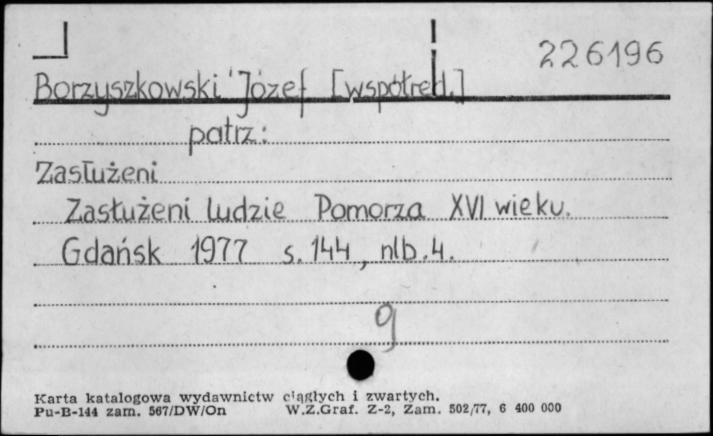 226196
Borzyszkowski Józef [współred.]
patrz:
Zasłużeni
Zasłużeni ludzie Pomorza XVI wieku.
Gdańsk 1977 s. 144, nlb. 4.
g
Karta katalogowa wydawnictw ciągłych i zwartych.
Pu-B-144 zam. 567/DW/On W.Z.Graf. Z-2, Zam. 502/77, 6 400 000